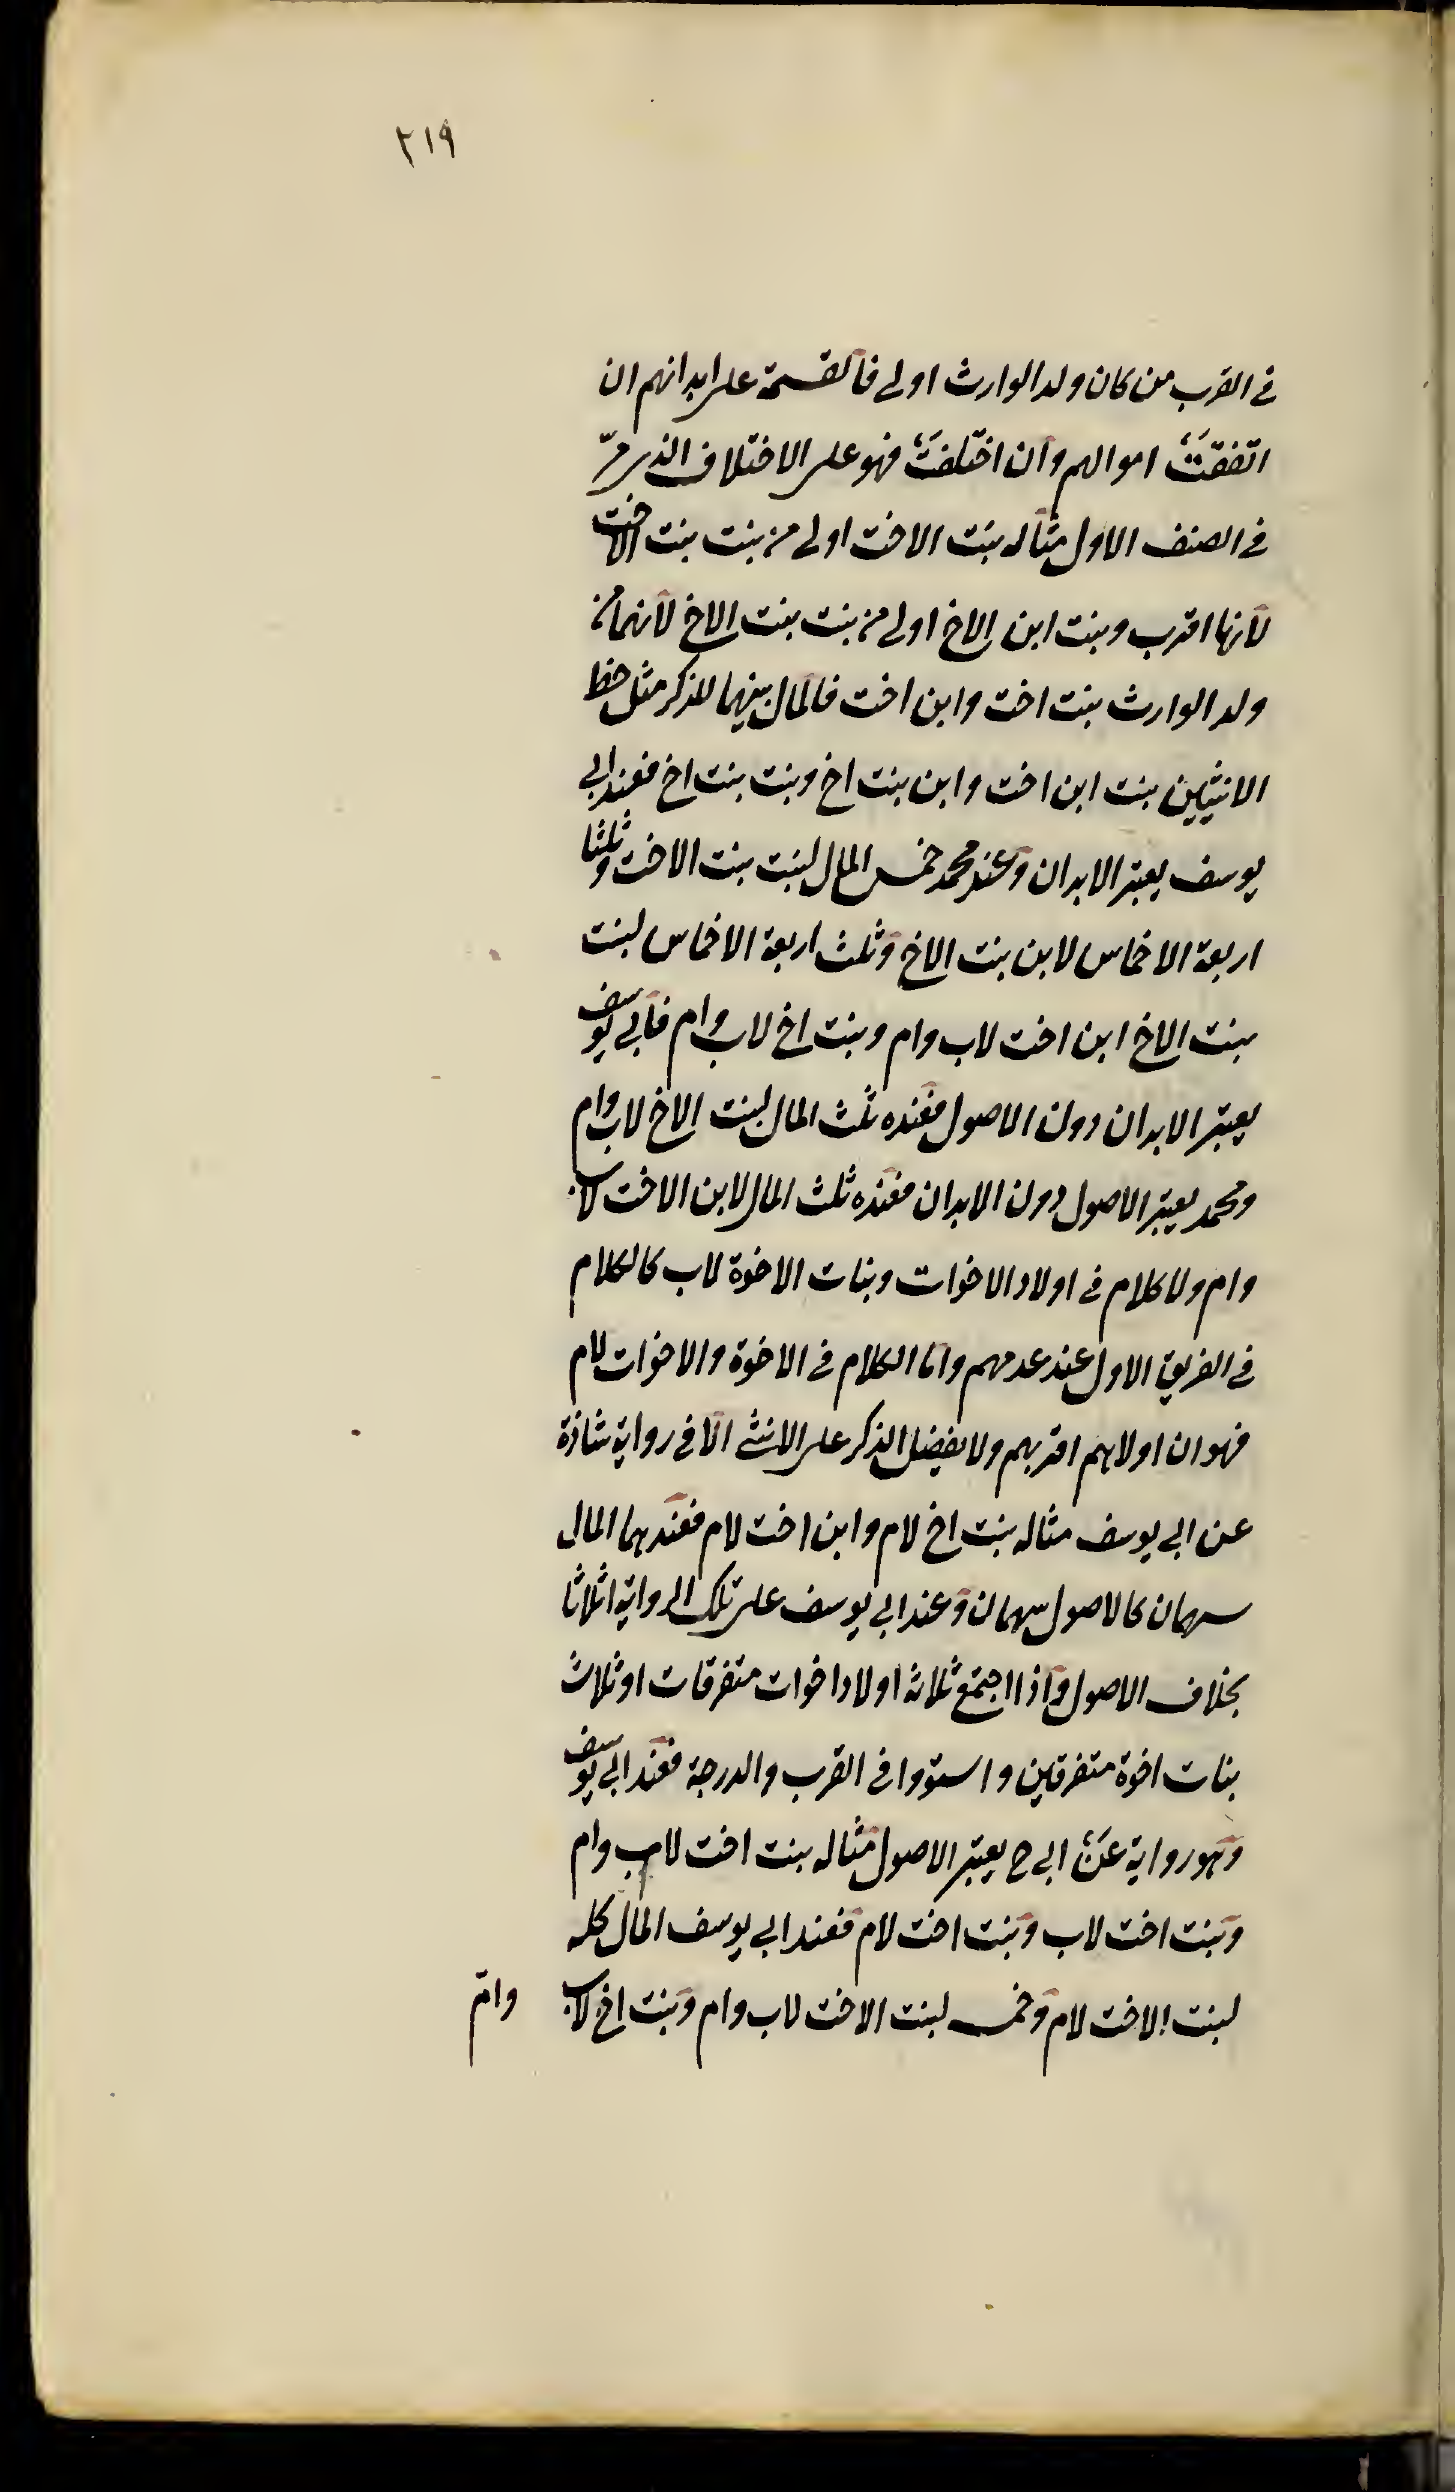 ٢١٩
في القرب من كان ولد الوارث اولى فالقسمة على ابدانهم ان
اتفقت اموالهم وان اختلفت فهو على الاختلاف الذي مرّ
في الصنف الاول مثاله بنت الاخت اولى من بنت بنت الاخت
لانها اقرب وبنت ابن الاخ اولى من بنت بنت الاخ لانهما من
ولد الوارث بنت اخت وابن اخت فالمال بينهما للذكر مثل حظ
الانثيين بنت ابن اخت وابن بنت اخ وبنت بنت اخ فعند ابي
يوسف يعتبر الابدان وعند محمد خمس المال لبنت بنت الاخت وثلثا
اربعة الاخماس لابن بنت الاخ وثلث اربعة الاخماس لبنت
بنت الاخ ابن اخت لاب وام وبنت اخ لاب وام فابي يوسف
يعتبر الابدان دون الاصول فعنده ثلث المال لبنت الاخ لاب وام
ومحمد يعتبر الاصول دون الابدان فعنده ثلث المال لابن الاخت لاب
وام ولا كلام في اولاد الاخوات وبنات الاخوة لاب كالكلام
في الفريق الاول عند عدمهم واما الكلام في الاخوة والاخوات لام
فهو ان اولاهم اقربهم ولا يفضل الذكر على الانثى الا في رواية شاذة
عن ابي يوسف مثاله بنت اخ لام وابن اخت لام فعندهما المال
سهمان كالاصول سهمان وعند ابي يوسف على تلك الرواية اثلاثا
بخلاف الاصول واذا اجتمع ثلاثة اولاد اخوات متفرقات او ثلاث
بنات اخوة متفرقين واستووا في القرب والدرجة فعند ابي يوسف
وهو رواية عن ابي ح يعتبر الاصول مثاله بنت اخت لاب وام
وبنت اخت لاب وبنت اخت لام فعند ابي يوسف المال كله
لبنت الاخت لام وخمس لبنت الاخت لاب وام وبنت اخ لاب
وامّ